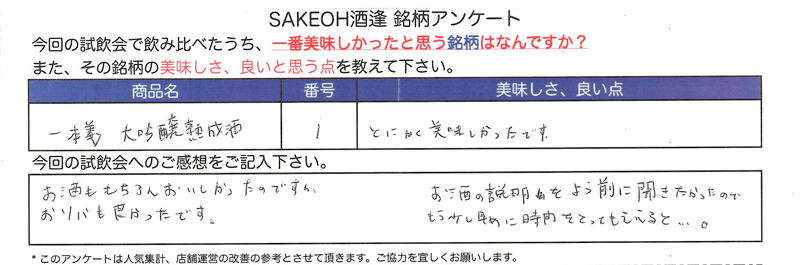 SAKEOH酒逢 銘柄アンケート
今回の試飲会で飲み比べたうち、一番美味しかったと思う銘柄はなんですか？
また、その銘柄の美味しさ、良いと思う点を教えて下さい。
商品名 番号 美味しさ、良い点
一本義 大吟醸熟成酒 1 とにかく美味しかったです
今回の試飲会へのご感想をご記入下さい。
お酒ももちろんおいしかったのですが、
おソバも良かったです。
お酒の説明をよう前に聞きたかったので
もう少し早めに時間をとってもらえると…。
* このアンケートは人気集計、店舗運営の改善の参考とさせて頂きます。ご協力を宜しくお願いします。